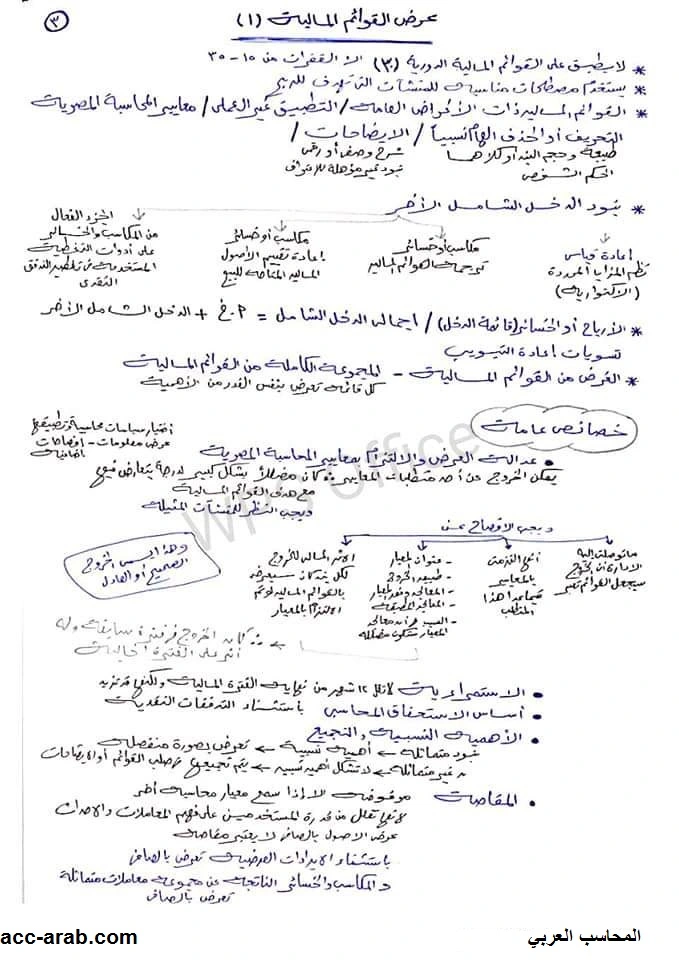 عرض القوائم المالية (١)
٣
* لا يطبق على القوائم المالية الدورية (٣٠) إلا الفقرات من ١٥ - ٣٥
* يستخدم مصطلحات مناسبة للمنشآت التي تهدف للربح
* القوائم المالية ذات الأغراض العامة / التطبيق غير العملي / معايير المحاسبة المصرية
التحريف أو الحذف الهام نسبياً / الإيضاحات /
طبيعة وحجم البند أو كلاهما
شرح وصفي أو رقمي
الحكم الشخصي
بنود غير مؤهلة للاعتراف
* بنود الدخل الشامل الآخر
إعادة قياس
نظم المزايا المحددة
(الاكتوارية)
مكاسب أو خسائر
ترجمة القوائم المالية
مكاسب أو خسائر
إعادة تقييم الأصول
المالية المتاحة للبيع
الجزء الفعال
من المكاسب والخسائر
على أدوات التغطية
المستخدمة في تغطية التدفق
النقدي
* الأرباح أو الخسائر (قائمة الدخل) / إجمالى الدخل الشامل = أ.خ + الدخل الشامل الآخر
تسويات إعادة التبويب
* الغرض من القوائم المالية - المجموعة الكاملة من القوائم المالية
كل قائمة تعرض بنفس القدر من الأهمية
خصائص عامة
اختيار سياسات محاسبية وتطبيقها
عرض معلومات - إفصاحات
إضافية
• عدالة العرض والالتزام بمعايير المحاسبة المصرية
يمكن الخروج عن أحد متطلبات المعايير :: كان مضللاً بشكل كبير لدرجة يتعارض فيها
مع هدف القوائم المالية
ويجب النظر للمنشآت المثيلة
ويجب الإفصاح عن
ما توصلت إليه
الإدارة أن الخروج
سيجعل القوائم تعبر
أنها التزمت
بالمعايير
فيما عدا هذا
المتطلب
- عنوان المعيار
- طبيعة الخروج
- المعالجة وفقاً للمعيار
- المعالجة المطبقة
- السبب في أن معالجة
المعيار ستكون مضللة
الأثر المالى للخروج
لكل بند كان سيعرض
بالقوائم المالية لو تم
الالتزام بالمعيار
وهذا ليس الخروج
الصحيح أو العادل
:: كان الخروج في فترة سابقة وله
أثر على الفترة الحالية
• الاستمرارية لا تقل ١٢ شهر من نهاية الفترة المالية ولكنها قد تزيد
• أساس الاستحقاق المحاسبى باستثناء التدفقات النقدية
• الأهمية النسبية والتجميع
بنود متماثلة ← أهمية نسبية ← تعرض بصورة منفصلة
غير متماثلة ← لا تشكل أهمية نسبية ← يتم تجميعها في صلب القوائم أو الإيضاحات
• المقاصة مرفوضة إلا إذا سمح معيار محاسبة آخر
لأنها تقلل من قدرة المستخدمين على فهم المعاملات والأحداث
عرض الأصول بالصافى لا يعتبر مقاصة
باستثناء الإيرادات العرضية تعرض بالصافى
والمكاسب والخسائر الناتجة عن مجموعة معاملات متماثلة
تعرض بالصافى
WPS Office
acc-arab.com
المحاسب العربي